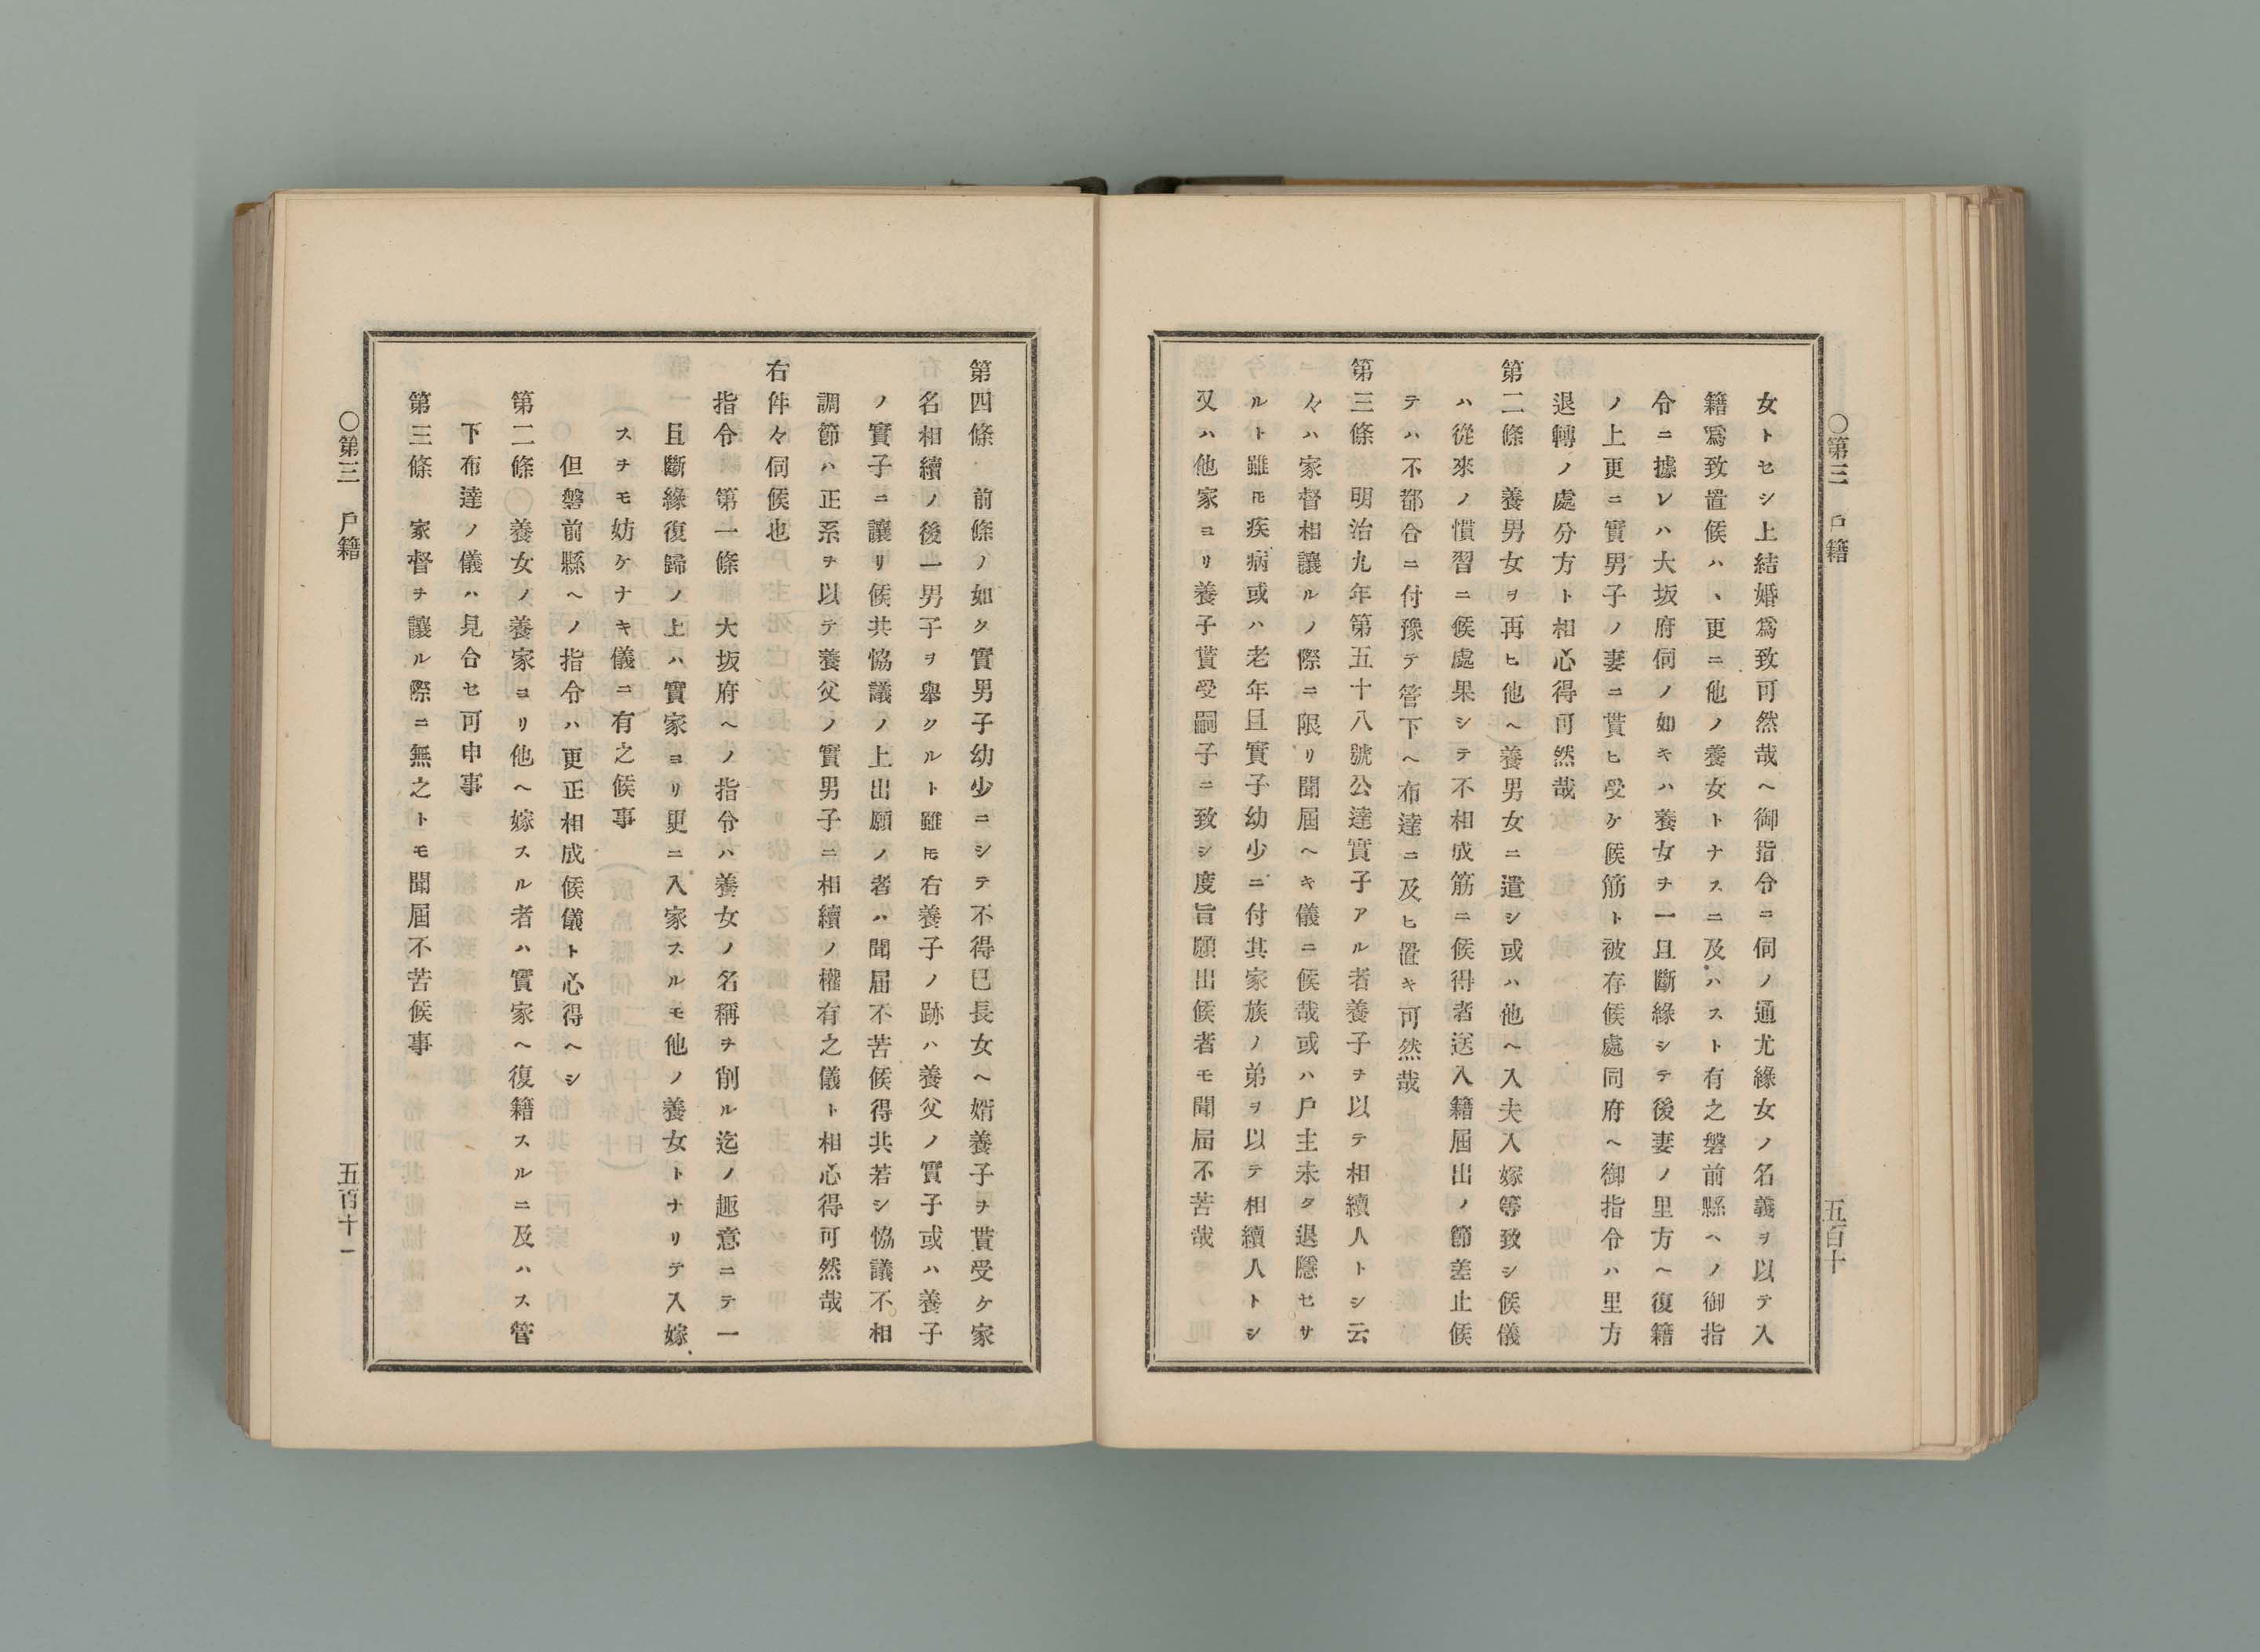 ○第三　戸籍　五百十
女トセシ上結婚爲致可然哉ヘ御指令ニ伺ノ通尤緣女ノ名義ヲ以テ入
籍爲致置候ハヽ更ニ他ノ養女トナスニ及ハスト有之磐前縣ヘノ御指
令ニ據レハ大坂府伺ノ如キハ養女ヲ一且斷緣シテ後妻ノ里方ヘ復籍
ノ上更ニ實男子ノ妻ニ貰ヒ受ケ候筋ト被存候處同府ヘ御指令ハ里方
退轉ノ處分方ト相心得可然哉
第二條　養男女ヲ再ヒ他ヘ養男女ニ遣シ或ハ他ヘ入夫入嫁等致シ候儀
ハ從來ノ慣習ニ候處果シテ不相成筋ニ候得者送入籍屆出ノ節差止候
テハ不都合ニ付豫テ管下ヘ布達ニ及ヒ置キ可然哉
第三條　明治九年第五十八號公達實子アル者養子ヲ以テ相續人トシ云
々ハ家督相讓ルノ際ニ限リ聞屆ヘキ儀ニ候哉或ハ戸主未タ退隱セサ
ルト雖𪜈疾病或ハ老年且實子幼少ニ付其家族ノ弟ヲ以テ相續人トシ
又ハ他家ヨリ養子貰受嗣子ニ致シ度旨願出候者モ聞屆不苦哉
第四條　前條ノ如ク實男子幼少ニシテ不得已長女ヘ婿養子ヲ貰受ケ家
名相續ノ後一男子ヲ擧クルト雖𪜈右養子ノ跡ハ養父ノ實子或ハ養子
ノ實子ニ讓リ候共恊議ノ上出願ノ者ハ聞屆不苦候得共若シ恊議不相
調節ハ正系ヲ以テ養父ノ實男子ニ相續ノ權有之儀ト相心得可然哉
右件々伺候也
指令　第一條　大坂府ヘノ指令ハ養女ノ名稱ヲ削ル迄ノ趣意ニテ一
且斷緣復歸ノ上ハ實家ヨリ更ニ入家スルモ他ノ養女トナリテ入嫁
スヲモ妨ケナキ儀ニ有之候事
但磐前縣ヘノ指令ハ更正相成候儀ト心得ヘシ
第二條　養女ノ養家ヨリ他ヘ嫁スル者ハ實家ヘ復籍スルニ及ハス管
下布達ノ儀ハ見合セ可申事
第三條　家督ヲ讓ル際ニ無之トモ聞屆不苦候事
○第三　戸籍　五百十一